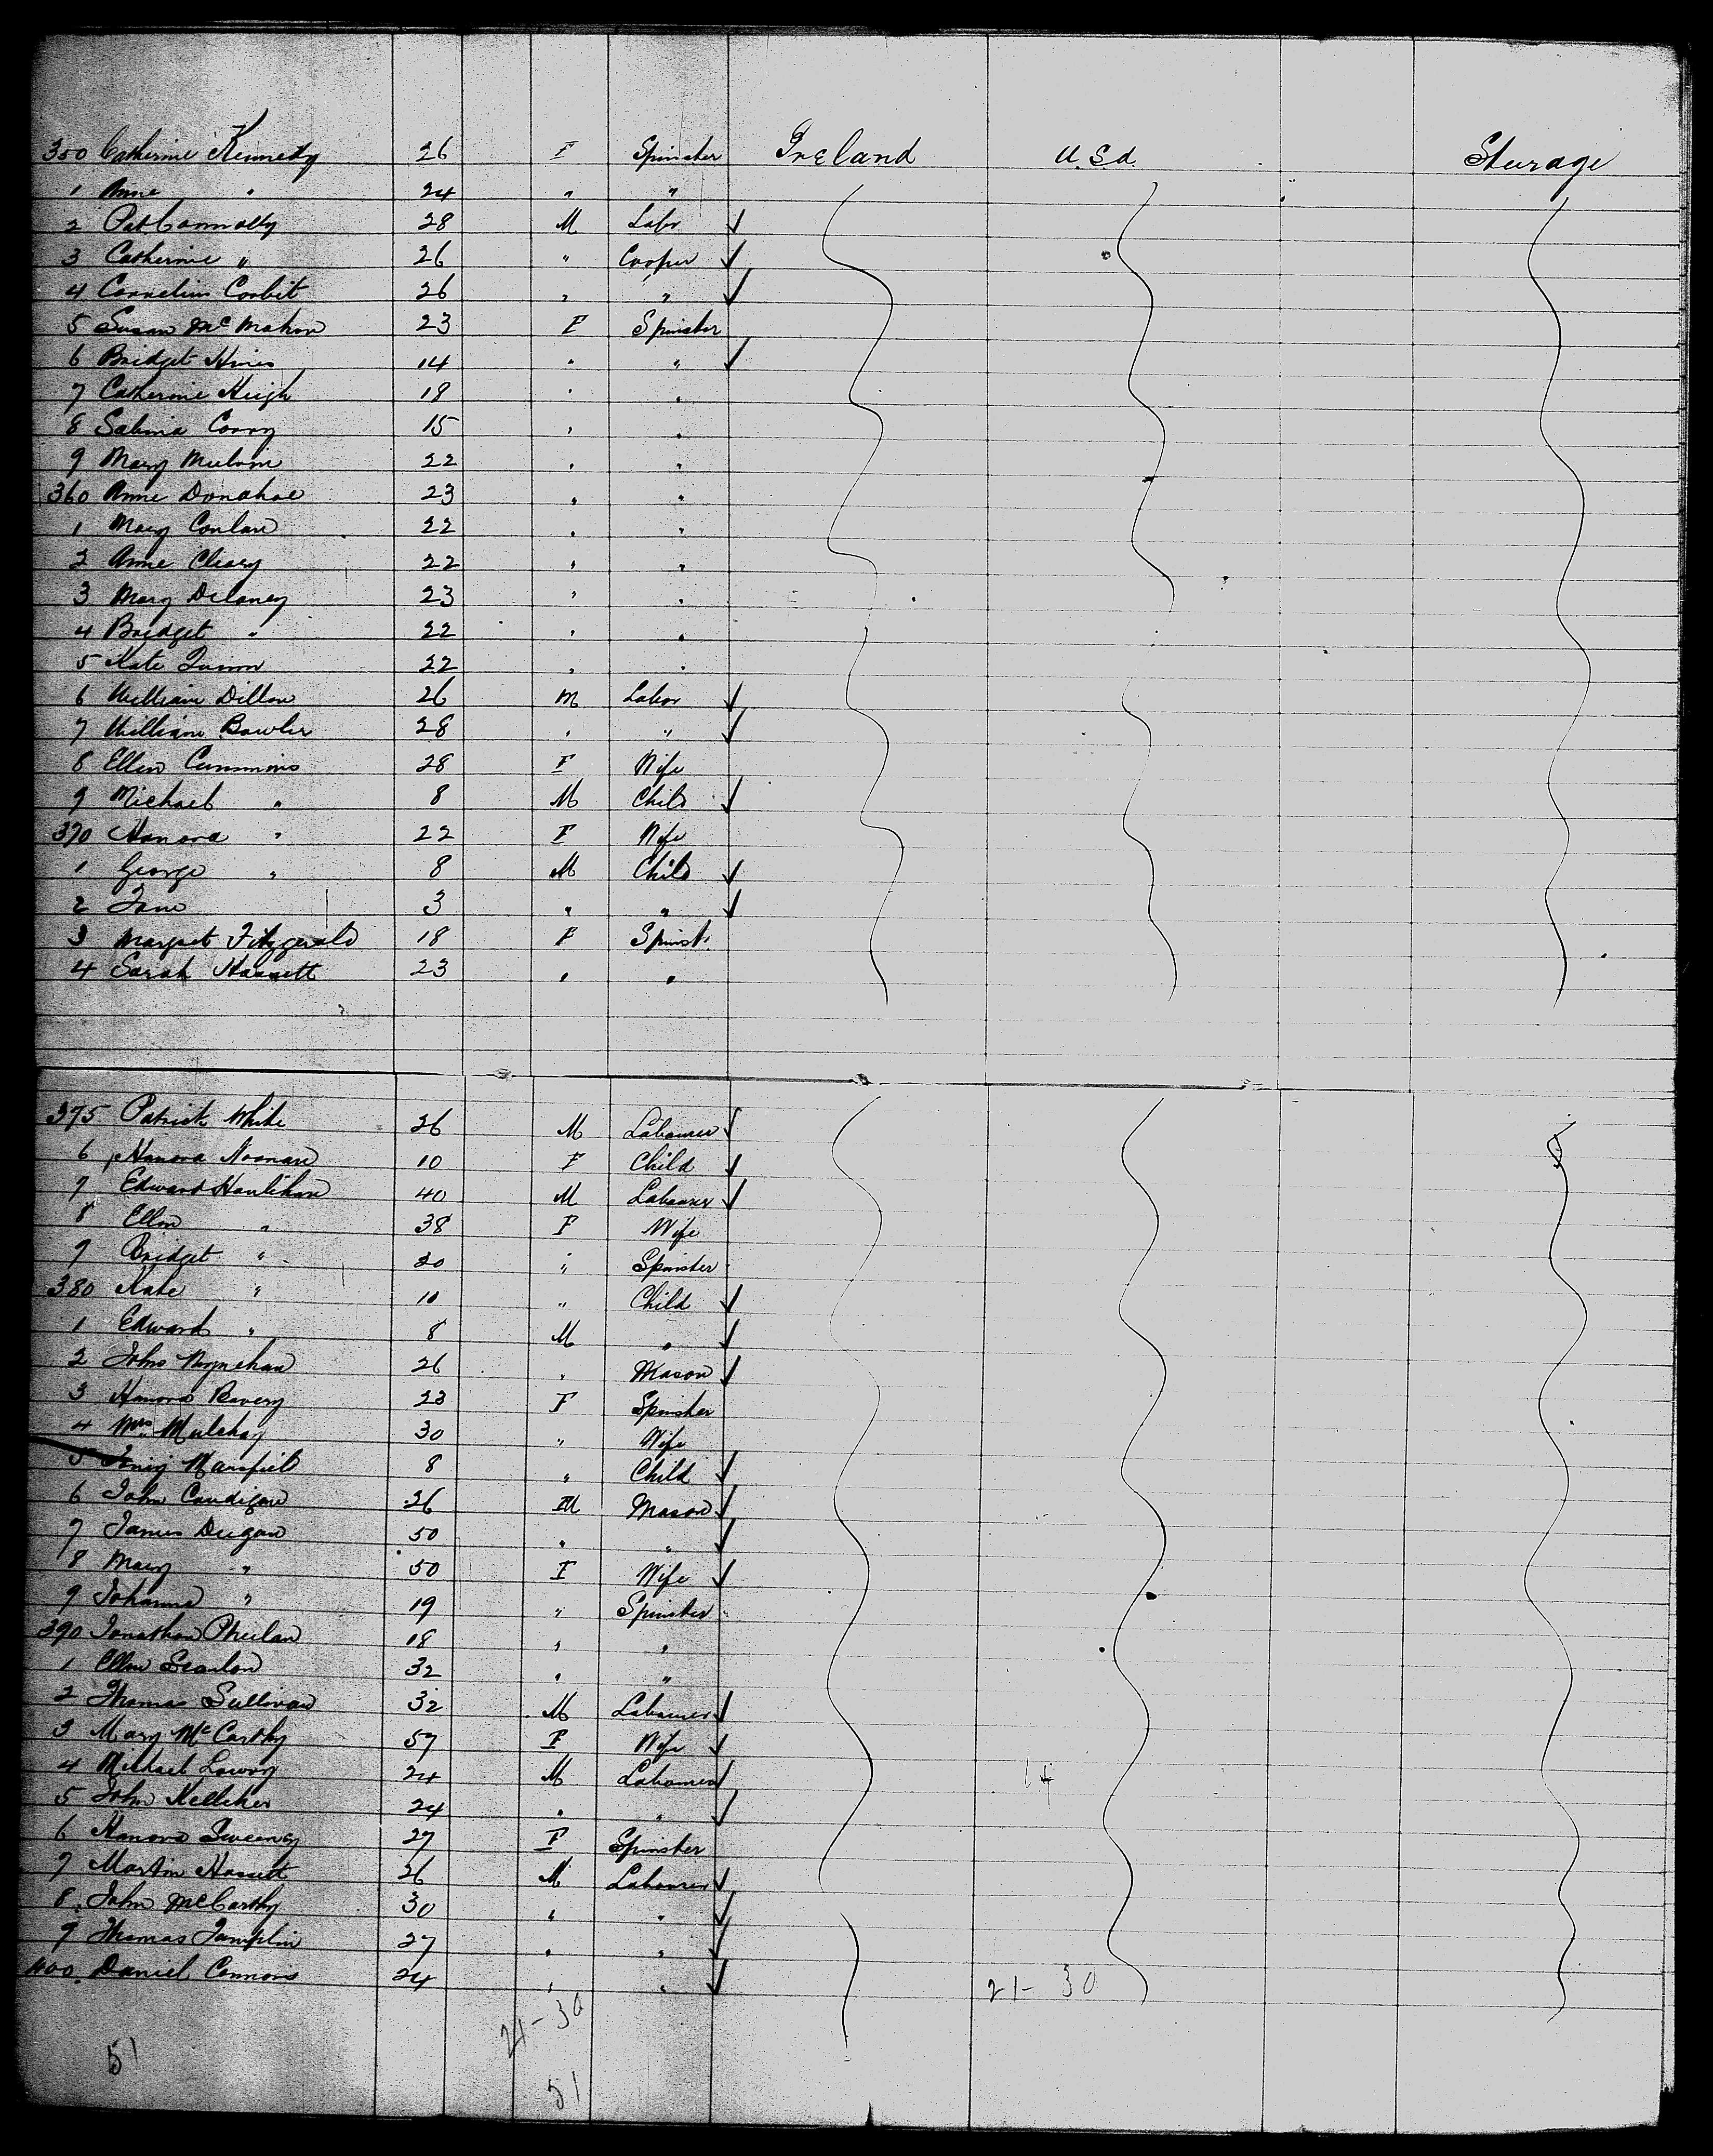 350 Catherine Kennedy 26 F Spinster Ireland U.S.A Sturage
1 Anne " 24 " "
2 Pat Connolly 28 M Labr ✓
3 Catherine " 26 " Cooper ✓
4 Cornelius Corbit 26 " " ✓
5 Susan Mc Mahon 23 F Spinster
6 Bridget Hines 14 " " ✓
7 Catherine Heigh 18 " "
8 Sabina Conry 15 " "
9 Mary 22 " "
360 Anne Donahoe 23 " "
1 Mary Conlan 22 " "
2 Anne Cleary 22 " "
3 Mary Delaney 23 " "
4 Bridget " 22 " "
5 Kate Quinn 22 " "
6 William Dillon 26 M Labor ✓
7 William Bowler 28 " " ✓
8 Ellen Cummins 28 F Wife
9 Michael " 8 M Child ✓
370 Hanora " 22 F Wife
1 George " 8 M Child ✓
2 Jane 3 " " ✓
3 Margaret Fitzgerald 18 F Spinst.
4 Sarah Hassett 23 " "
375 Patrick White 26 M Labourer ✓
6 Hanora Noonan 10 F Child ✓
7 Edward Hanlihan 40 M Labourer ✓
8 Ellen " 38 F Wife
9 Bridget " 20 " Spinster
380 Kate " 10 " Child ✓
1 Edward " 8 M " ✓
2 John 26 " Mason ✓
3 Hanora 23 F Spinster
4 Mrs Mulchay 30 " Wife
5 Mansfield 8 " Child ✓
6 John Condigan 26 M Mason ✓
7 James Deegan 50 " " ✓
8 Mary " 50 F Wife ✓
9 Johanna " 19 " Spinster
390 Jonathan Phelan 18 " "
1 Ellen Scanlon 32 " "
2 Thomas Sullivan 32 M Labourer ✓
3 Mary McCarthy 57 F Wife ✓
4 Michael Lowry 24 M Labourer ✓
5 John Kelleher 24 " " ✓
6 Hanora Sweeney 27 F Spinster
7 Martin Hassett 26 M Labourer ✓
8 John McCarthy 30 " " ✓
9 Thomas Tamplin 27 " " ✓
400 Daniel Connors 24 " " ✓ 21-30
21-30
51
51